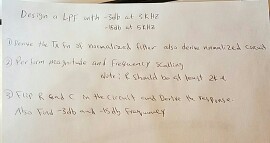 Design a LPF with -3db at 5KHz
-15db at 5KHz
1) Derive the Tx fn of normalized filter also derive normalized circuit
2) Perform magnitude and frequency scaling
Note: R should be at least 2k
3) Flip R and C in the circuit and Derive the response.
Also Find -3db and -15db Frequency